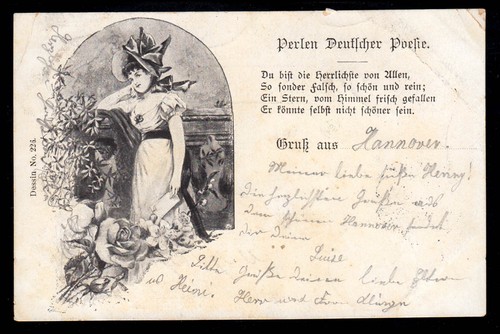 Perlen Deutscher Poesie.
Du bist die Herrlichste von Allen,
So sonder Falsch, so schön und rein;
Ein Stern, vom Himmel frisch gefallen
Er könnte selbst nicht schöner sein.
Gruß aus Hannover.
Meiner liebe süßen Henny!
Die herzlichsten Grüßen aus
dem schönen Hannover, sendet
dir deine
Luise
Bitte Grüße deinen liebe Eltern
u. Heini. Herr und Frau
Dussin. No. 224.